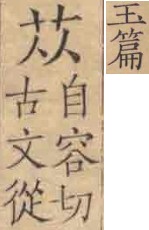 玉篇
苁
自容切
古文從